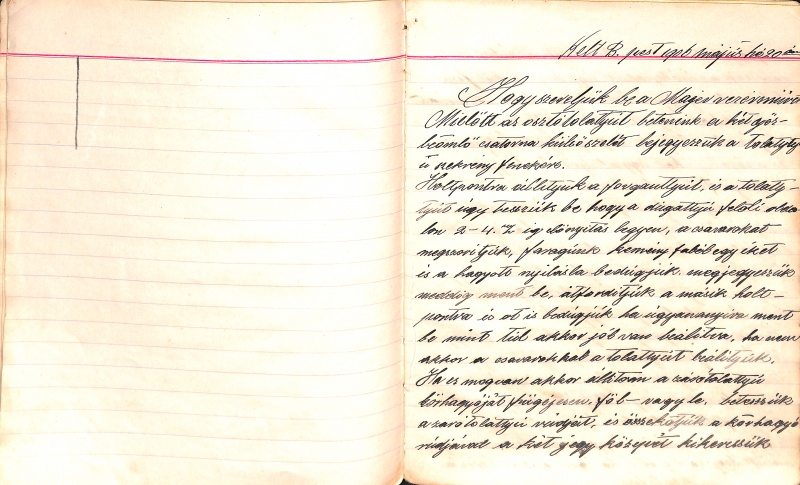 Kelt B. pest 1906 május hó 20án
Hogy szereljük be a Majer vezérműve
Mielőtt az osztótolattyút betennénk a két gőz-
beömlő csatorna külső szélét bejegyezzük a tolatyty
ú szekrény fenekére.
Holtpontra állítjuk a forgattyút, és a tolaty-
tyút úgy tesszük be hogy a dugattyú felöli olda
lon 2-4. ig előnyitás legyen, a csavarokat
megszorítjuk, faragunk kemény fából egy éket
és a hagyott nyilásba bedugjuk megjegyezzük
meddig ment be, átfordítjuk a másik holt-
pontra is ot is bedugjuk ha ugyanannyira ment
be mint túl akkor jól van beálitva, ha nem
akkor a csavarokkal a tolattyút beálitjuk.
Ha ez megvan akkor állítom a zárótolattyú
körhagyóját függőjesen, föl- vagy le, betesszük
a zárótolattyú rúdját, és összekötjük a körhagyó
rúdjával a két jegy közepét kikeressük